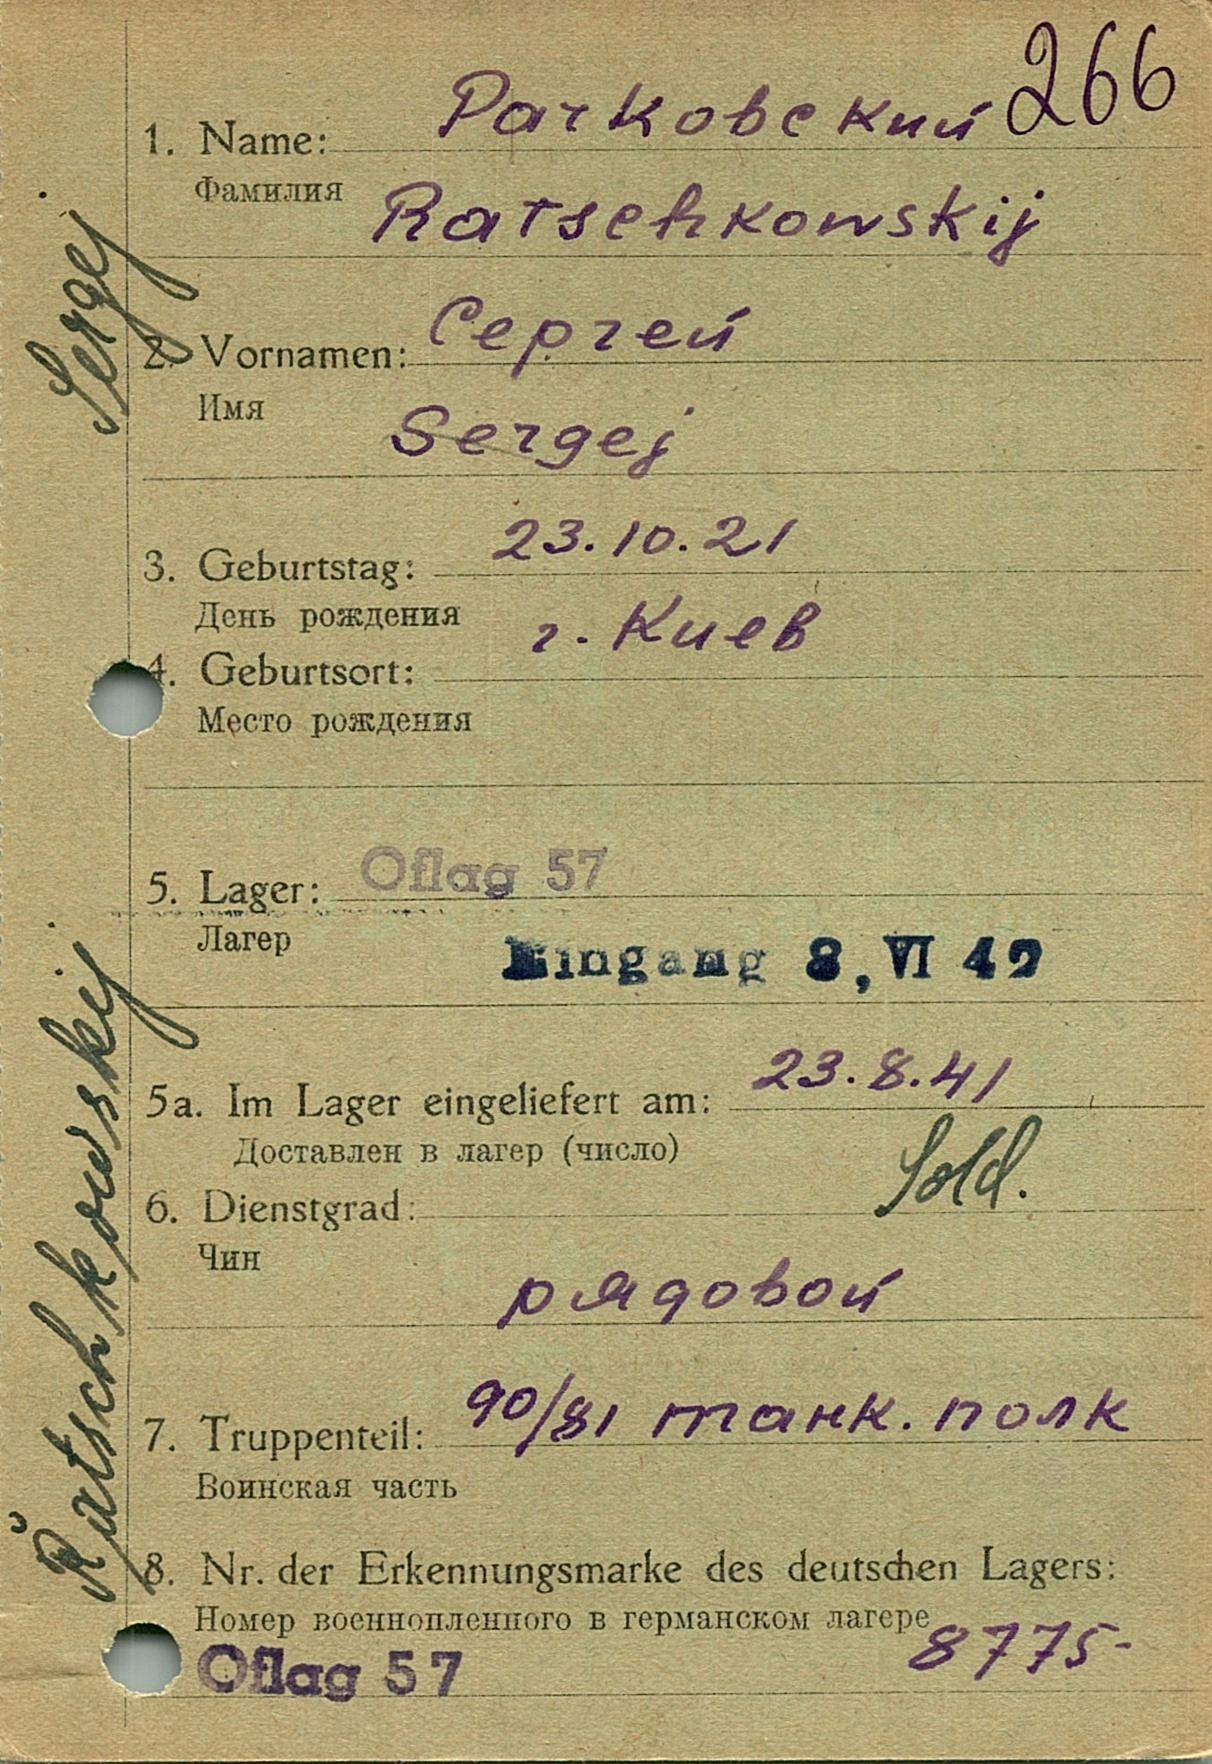 266
1. Name: Рачковский
Фамилия
Ratschkowskij
2. Vornamen: Сергей
Имя
Sergej
3. Geburtstag: 23.10.21
День рождения
г. Киев
4. Geburtsort:
Место рождения
5. Lager: Oflag 57
Лагер
Eingang 8, VI 42
5a. Im Lager eingeliefert am: 23.8.41
Доставлен в лагер (число)
6. Dienstgrad: Sold.
Чин
рядовой
7. Truppenteil: 90/81 танк. полк
Воинская часть
8. Nr. der Erkennungsmarke des deutschen Lagers:
Номер военнопленного в германском лагере
8775-
Oflag 57
Ratschkowskij
Sergej